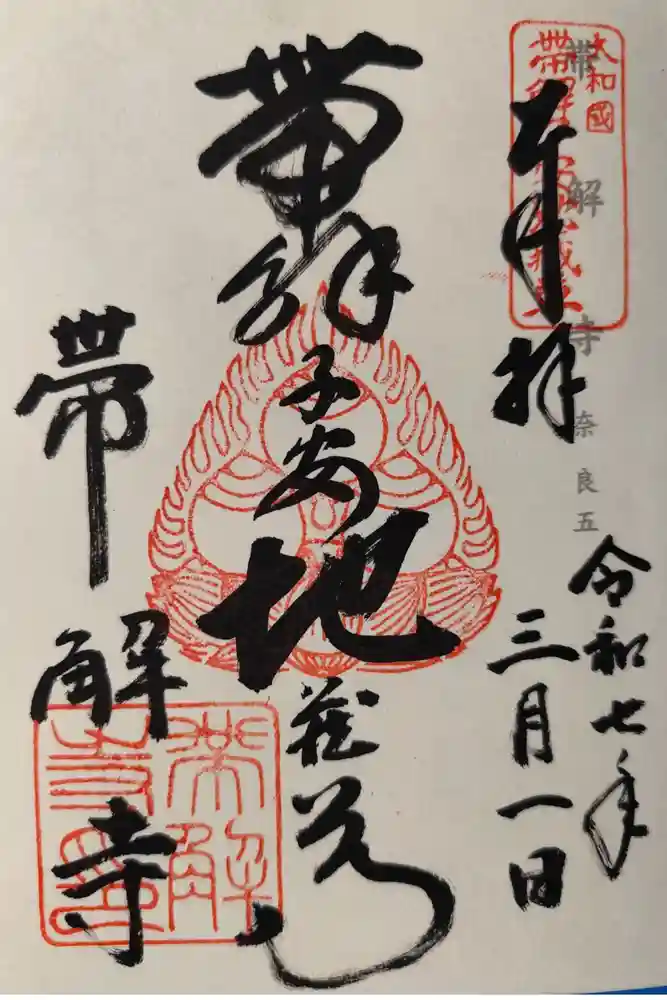 奉拝
令和七年
三月一日
帯解子安地蔵尊
帯解寺
大和國
帯解子安地蔵尊
帯解寺奈良五
帯解寺印